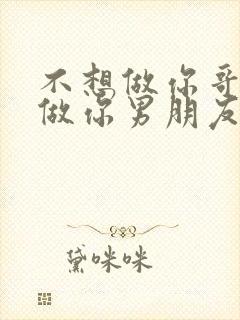 不想做你哥
做你男朋友
黛咪咪